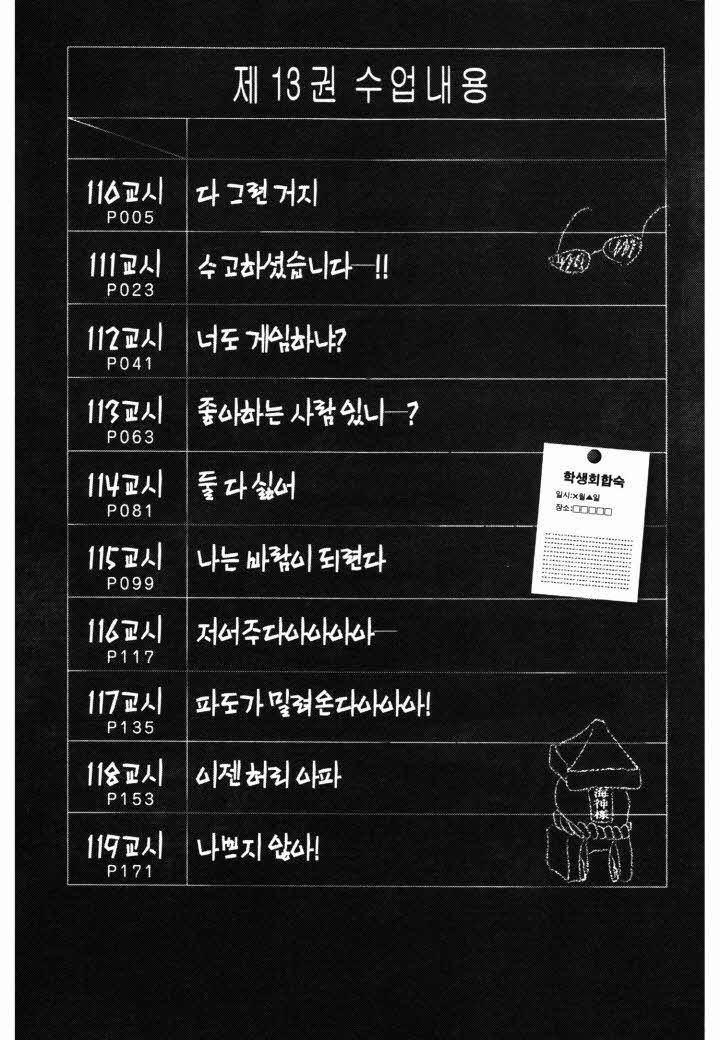 제 13 권 수업내용
110교시 다 그런 거지
P005
111교시 수고하셨습니다―!!
P023
112교시 너도 게임하냐?
P041
113교시 좋아하는 사람 있니―?
P063
학생회합숙
일시:×월▲일
장소:□□□□□
114교시 둘 다 싫어
P081
115교시 나는 바람이 되련다
P099
116교시 저어주다아아아아―
P117
117교시 파도가 밀려온다아아아!
P135
118교시 이젠 허리 아파
P153
海神様
119교시 나쁘지 않아!
P171